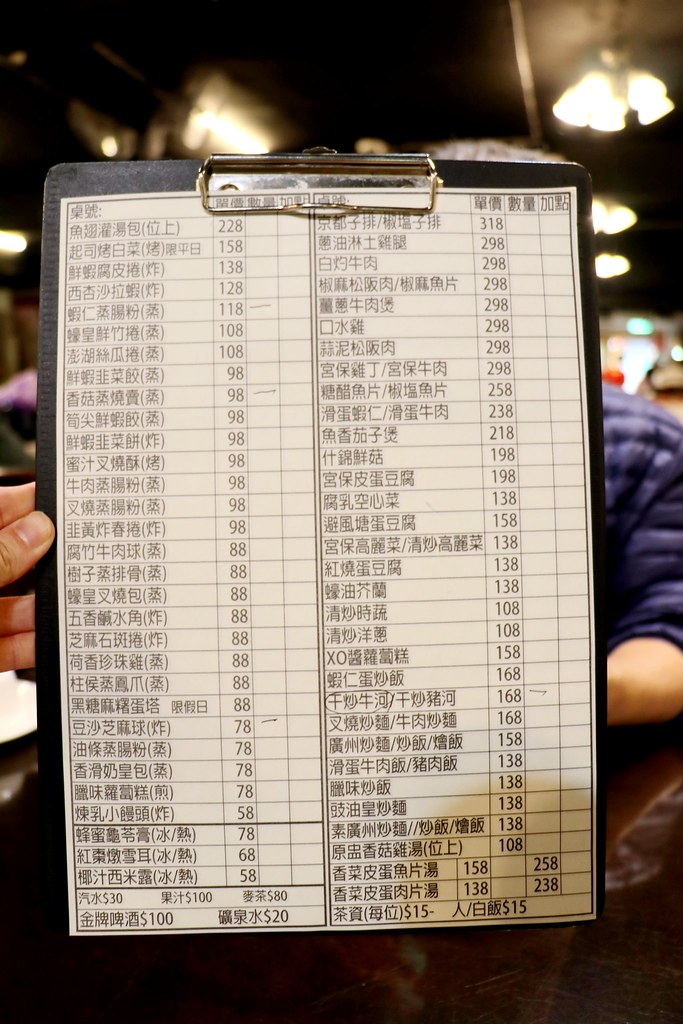 桌號: 單價 數量 加點
魚翅灌湯包(位上) 228
起司烤白菜(烤)限平日 158
鮮蝦腐皮捲(炸) 138
西杏沙拉蝦(炸) 128
蝦仁蒸腸粉(蒸) 118 一
蠔皇鮮竹捲(蒸) 108
澎湖絲瓜捲(蒸) 108
鮮蝦韭菜餃(蒸) 98
香菇蒸燒賣(蒸) 98 一
筍尖鮮蝦餃(蒸) 98
鮮蝦韭菜餅(炸) 98
蜜汁叉燒酥(烤) 98
牛肉蒸腸粉(蒸) 98
叉燒蒸腸粉(蒸) 98
韭黃炸春捲(炸) 98
腐竹牛肉球(蒸) 88
樹子蒸排骨(蒸) 88
蠔皇叉燒包(蒸) 88
五香鹹水角(炸) 88
芝麻石斑捲(炸) 88
荷香珍珠雞(蒸) 88
柱侯蒸鳳爪(蒸) 88
黑糖麻糬蛋塔 限假日 88
豆沙芝麻球(炸) 78 一
油條蒸腸粉(蒸) 78
香滑奶皇包(蒸) 78
臘味蘿蔔糕(煎) 78
煉乳小饅頭(炸) 58
蜂蜜龜苓膏(冰/熱) 78
紅棗燉雪耳(冰/熱) 68
椰汁西米露(冰/熱) 58
汽水$30 果汁$100 麥茶$80
金牌啤酒$100 礦泉水$20
桌號: 單價 數量 加點
京都子排/椒塩子排 318
蔥油淋土雞腿 298
白灼牛肉 298
椒麻松阪肉/椒麻魚片 298
薑蔥牛肉煲 298
口水雞 298
蒜泥松阪肉 298
宮保雞丁/宮保牛肉 298
糖醋魚片/椒塩魚片 258
滑蛋蝦仁/滑蛋牛肉 238
魚香茄子煲 218
什錦鮮菇 198
宮保皮蛋豆腐 198
腐乳空心菜 138
避風塘蛋豆腐 158
宮保高麗菜/清炒高麗菜 138
紅燒蛋豆腐 138
蠔油芥蘭 138
清炒時蔬 108
清炒洋蔥 108
XO醬蘿蔔糕 158
蝦仁蛋炒飯 168
干炒牛河/干炒豬河 168 一
叉燒炒麵/牛肉炒麵 168
廣州炒麵/炒飯/燴飯 158
滑蛋牛肉飯/豬肉飯 138
臘味炒飯 138
豉油皇炒麵 138
素廣州炒麵//炒飯/燴飯 138
原盅香菇雞湯(位上) 108
香菜皮蛋魚片湯 158 258
香菜皮蛋肉片湯 138 238
茶資(每位)$15- 人/白飯$15